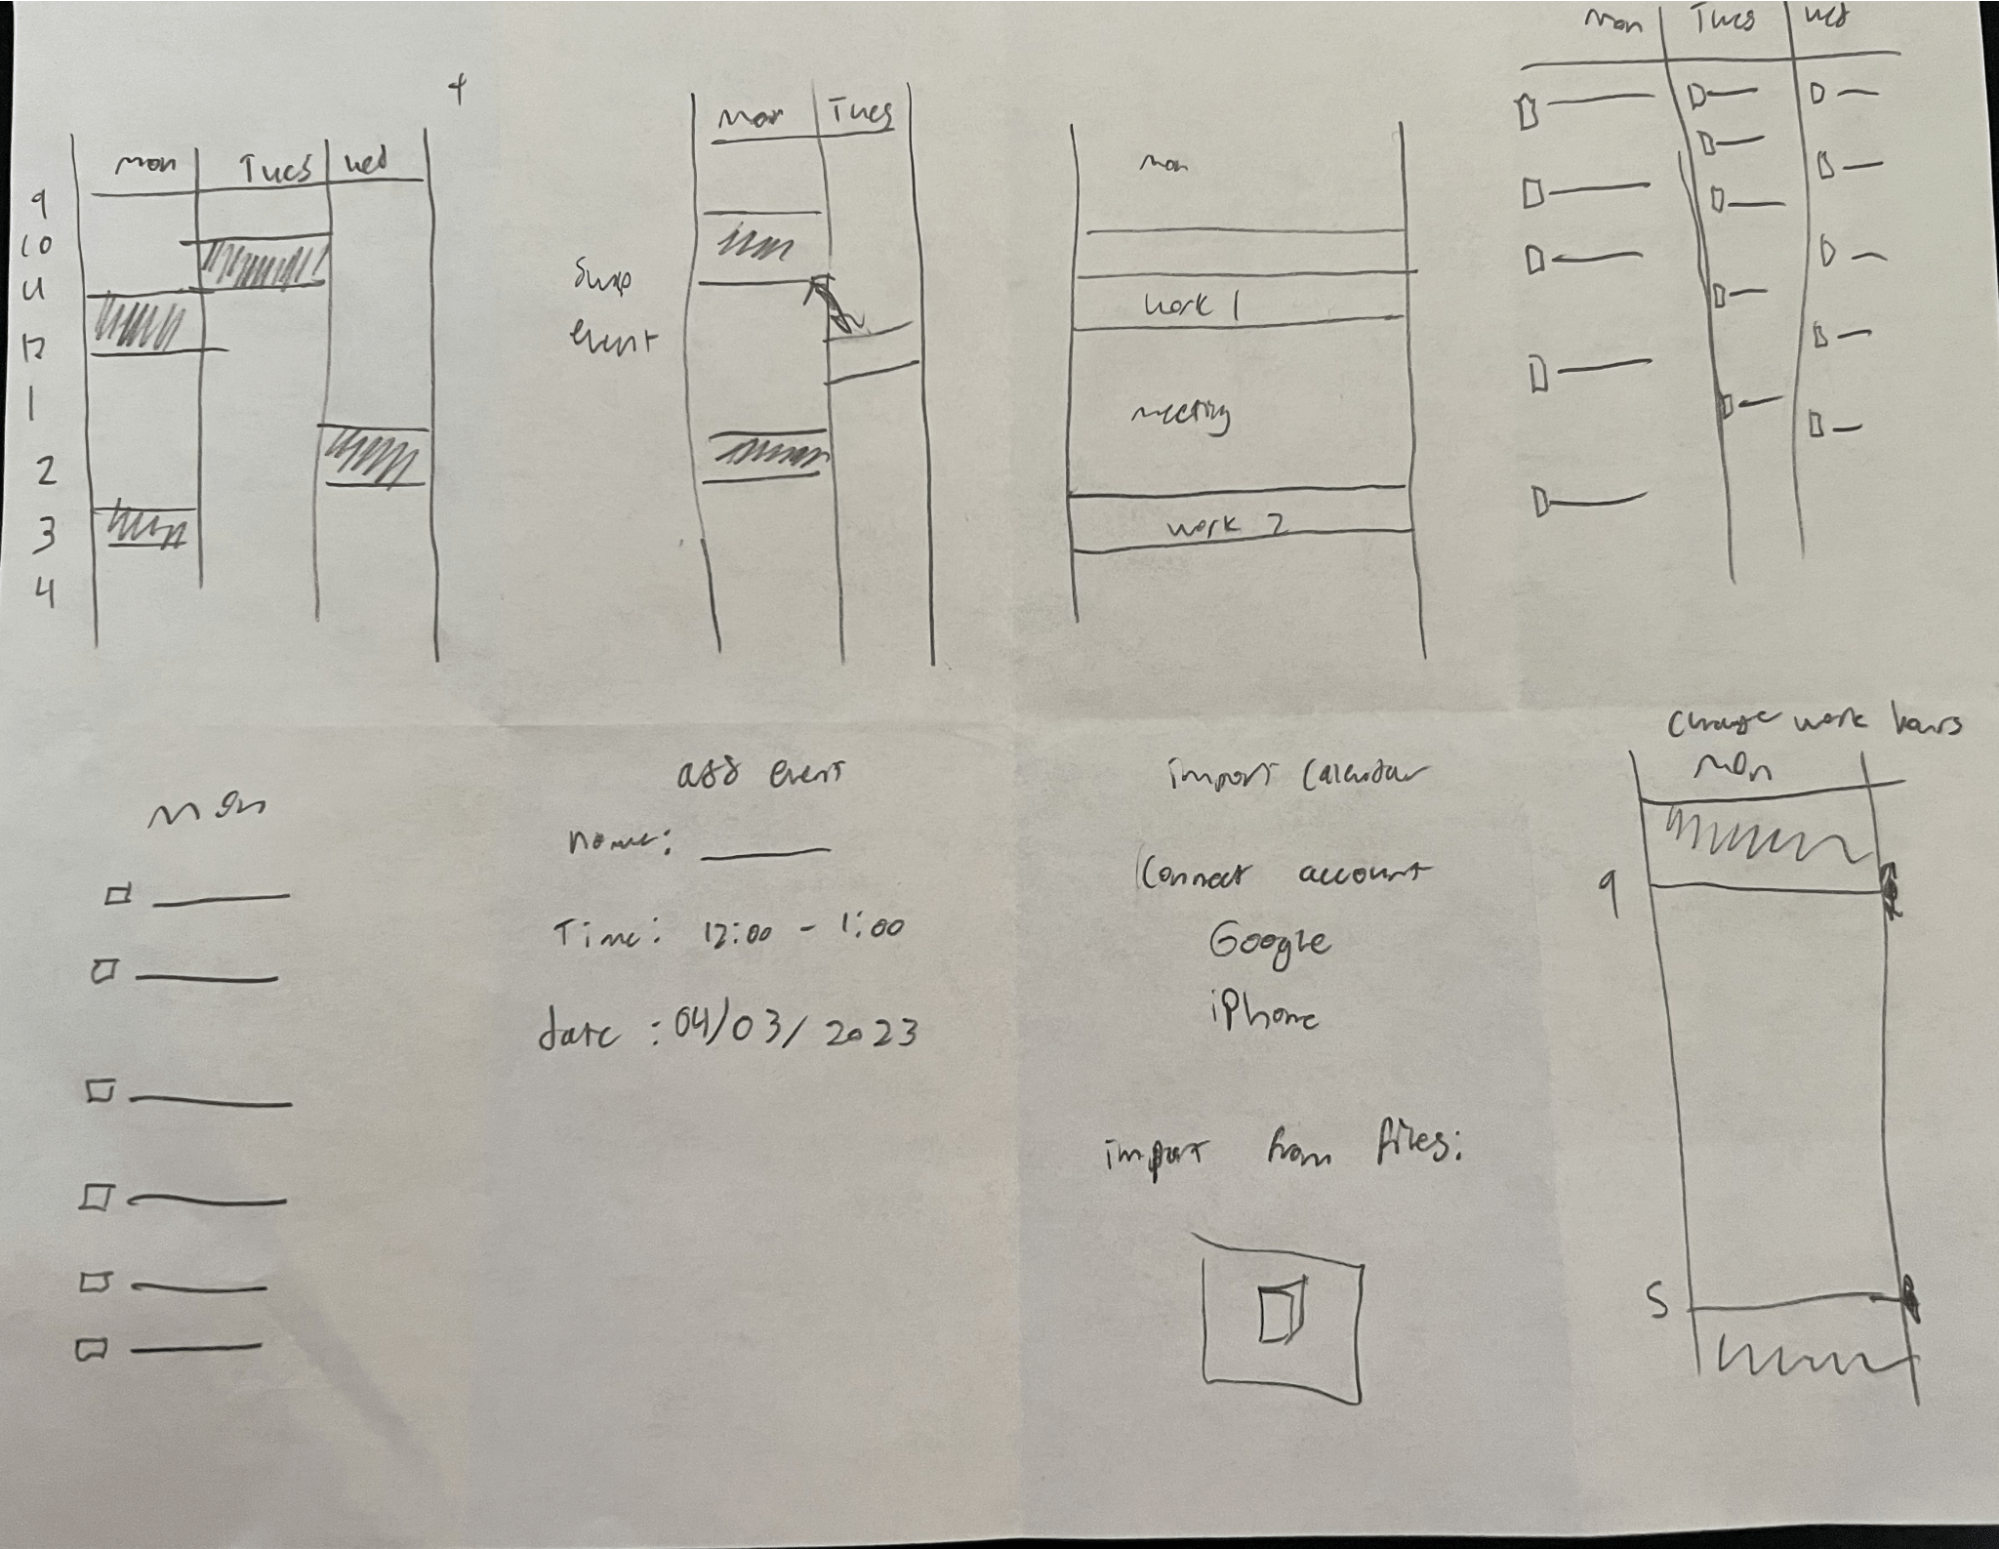 +
Mon Tues wed
9
10
11
12
1
2
3
4
Mon Tues
Swap
event
Mon
work 1
meeting
work 2
Mon Tues wed
Mon
add event
name:
Time: 12:00 - 1:00
date: 04/03/2023
import Calendar
Connect account
Google
iPhone
import from files:
Change work hours
Mon
9
5